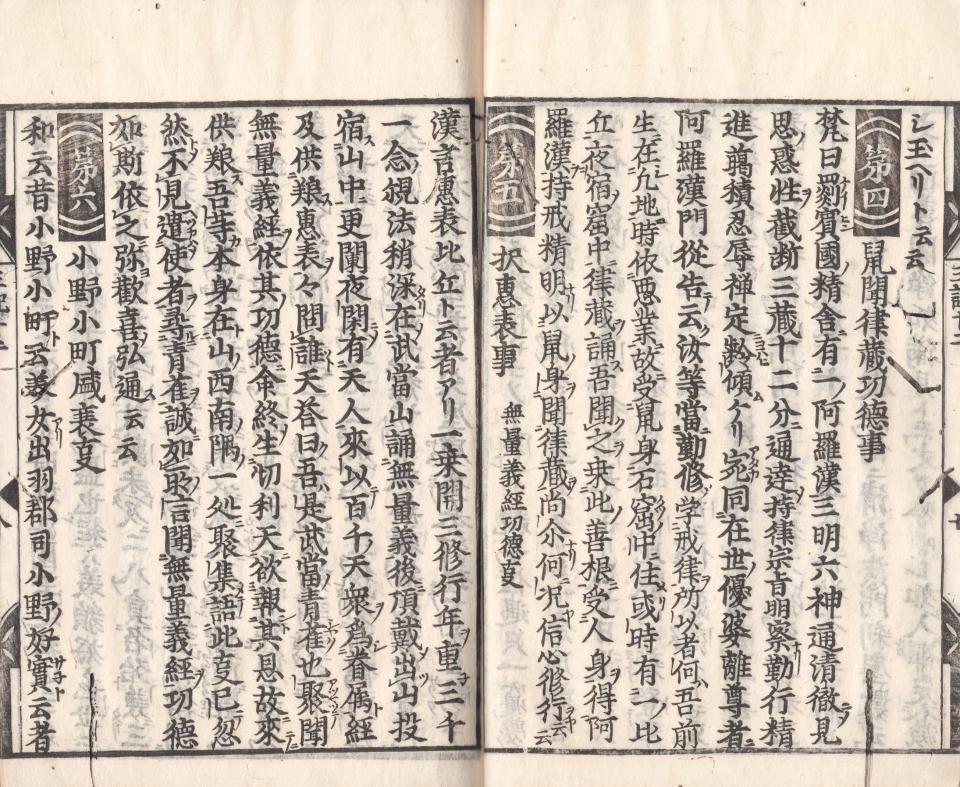 シ玉ヘリト云云
第四 鼠聞律蔵功徳事
梵曰罽賓國精舎有一阿羅漢三明六神通清徹見
思惑性截断三藏十二分通達持律宗旨明察勤行精
進蘊積忍辱禅定齢傾ケリ宛同在世優婆離尊者
阿羅漢門從告云汝等當勤修学戒律所以者何吾前
生在凡地時依悪業故受鼠身石窟中住或時有一比
丘夜宿窟中律藏誦吾聞之乗此善根受人身得阿
羅漢持戒精明以鼠身聞律藏尚尒何况信心修行云云
第五 択惠表事 無量義經功德㕝
漢言惠表比丘ト云者アリ一乗開三修行年重三千
一念覬法稍深在武當山誦無量義後頂戴出山投
宿山中更闌夜閑有天人來以百千天衆爲眷属經
及供粮惠表々問誰天荅曰吾是武當青雀也聚聞
無量義經依其功德命終生忉利天欲報其恩故來
供粮吾等本身在山西南隅一処聚集語此㕝已忽
然不見遣使者尋青雀誠如所言聞無量義經功德
如斯依之弥歡喜弘通云云
第六 小野小町盛衰㕝
和云昔小野小町云美女出羽郡司小野好實云者